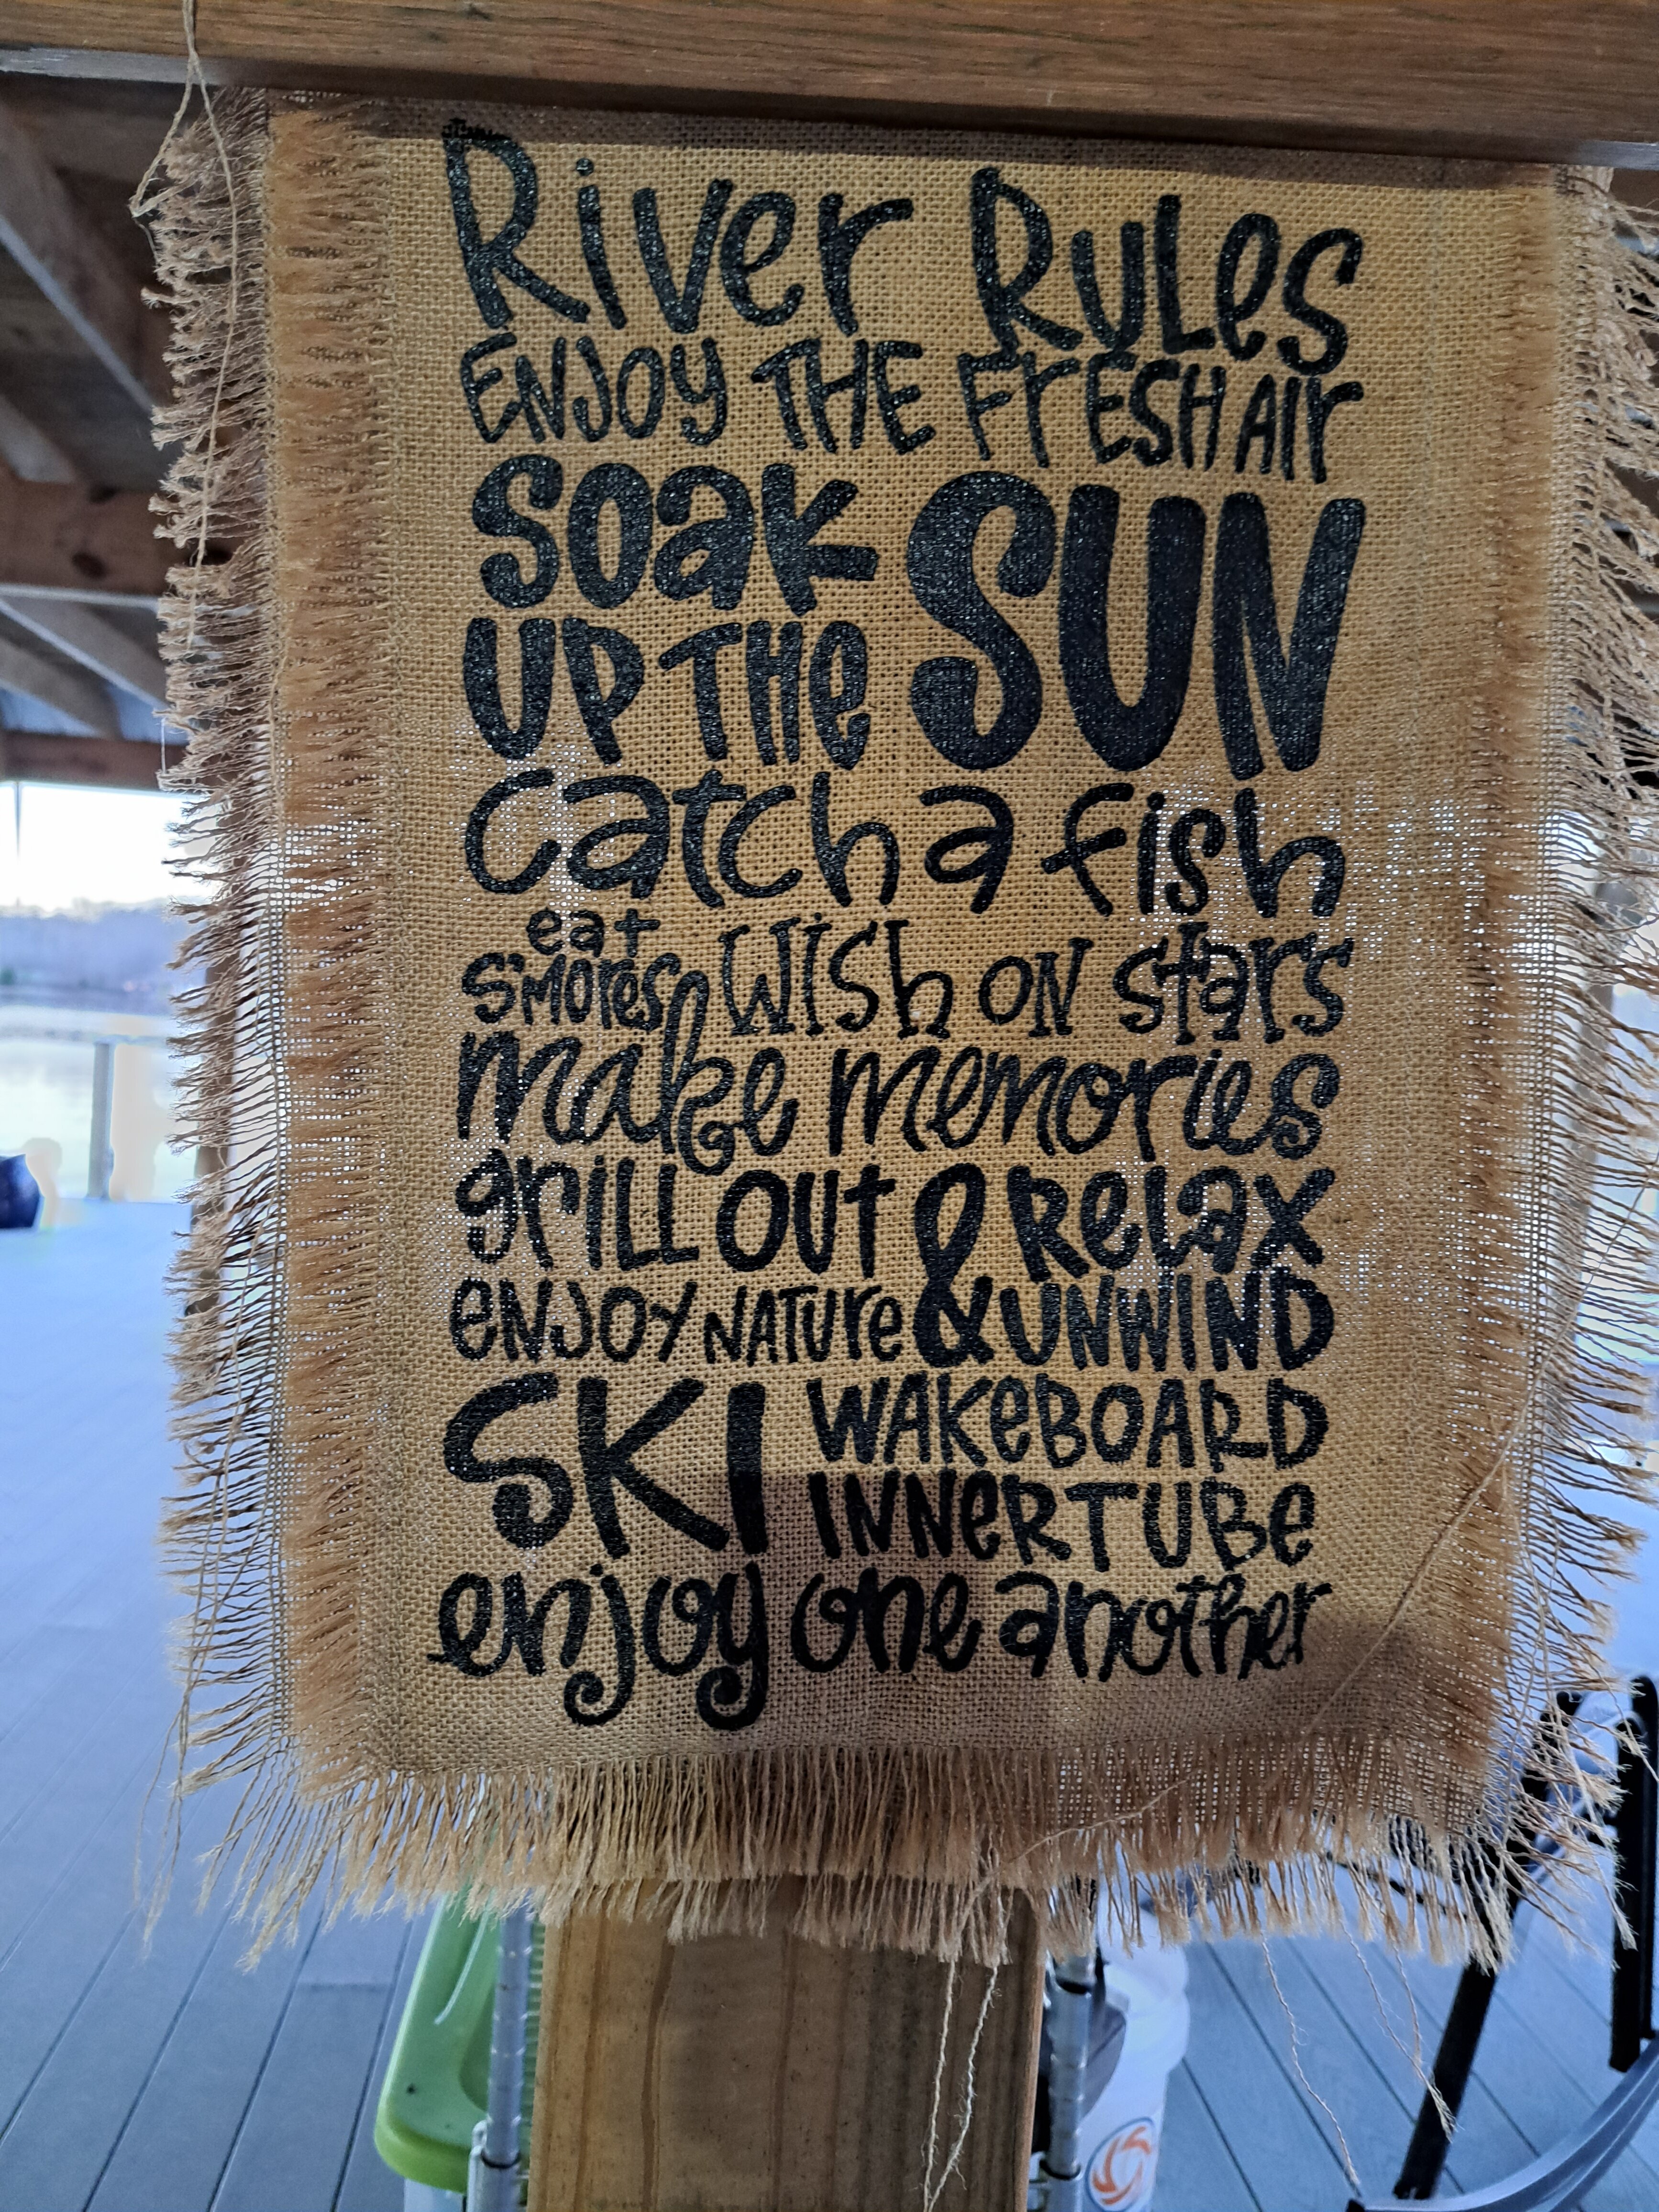 River Rules
ENJOY THE FrESH AIr
Soak
UP THe SUN
Catch a fish
eat
S'MOreS WISh ON stars
make memories
grill OUt & Relax
eNJOY NATUre & UNWIND
SKI WAKeBOARD
INNeRTUBe
enjoy one another